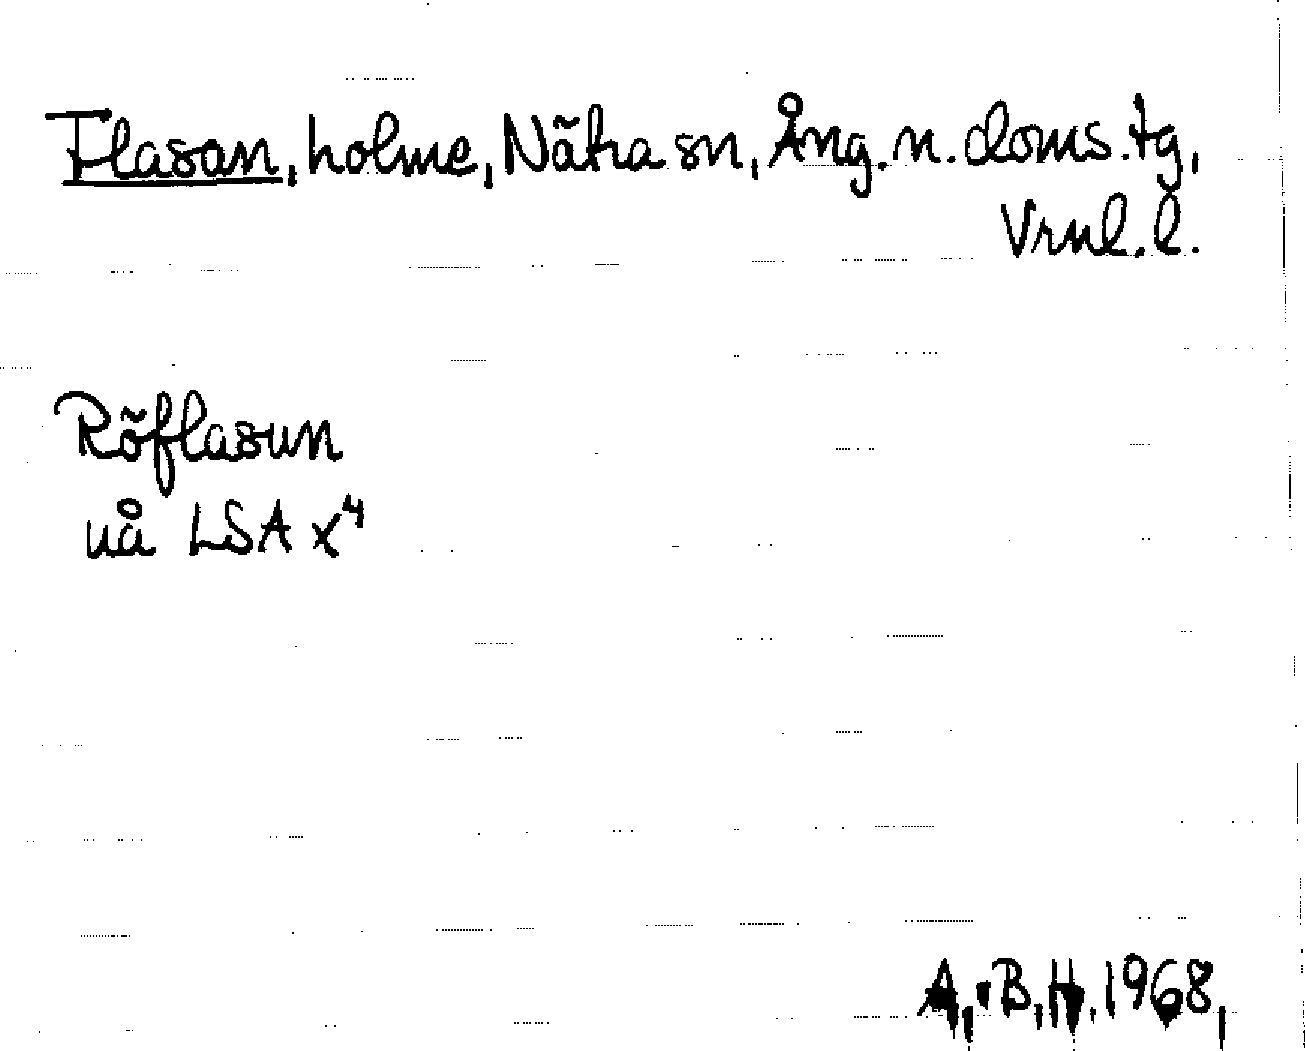 Flasan, holme, Nätra sn, Ång. n. doms.tg,
Vrnl. l.
Röflasun
uå LSA x⁴
A. B. H. 1968.